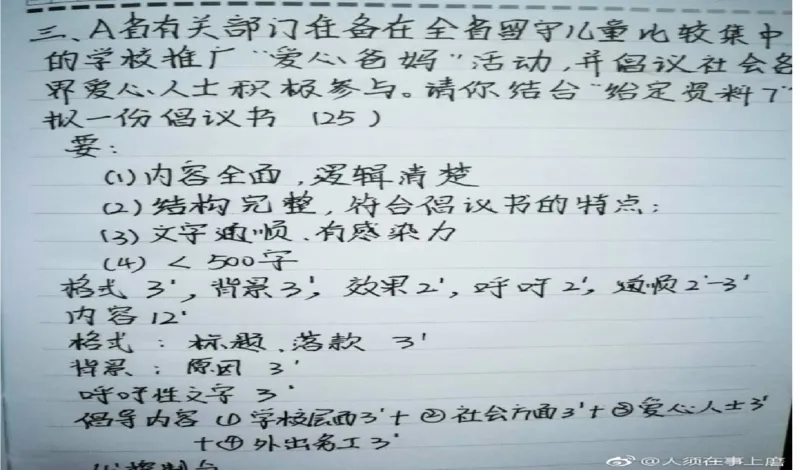 三、A省有关部门准备在全省留守儿童比较集中
的学校推广“爱心爸妈”活动,并倡议社会各
界爱心人士积极参与。请你结合“给定资料7”
拟一份倡议书 (25)
要:
(1)内容全面,逻辑清楚
(2)结构完整,符合倡议书的特点;
(3)文字通顺、有感染力
(4)<500字
格式 3',背景3',效果2',呼吁2',通顺2'-3'
内容12'
格式:标题、落款 3'
背景:原因 3'
呼吁性文字 3'
倡导内容 ①学校层面3'+②社会方面3'+③爱心人士3'
+④外出务工3'
@人须在事上磨